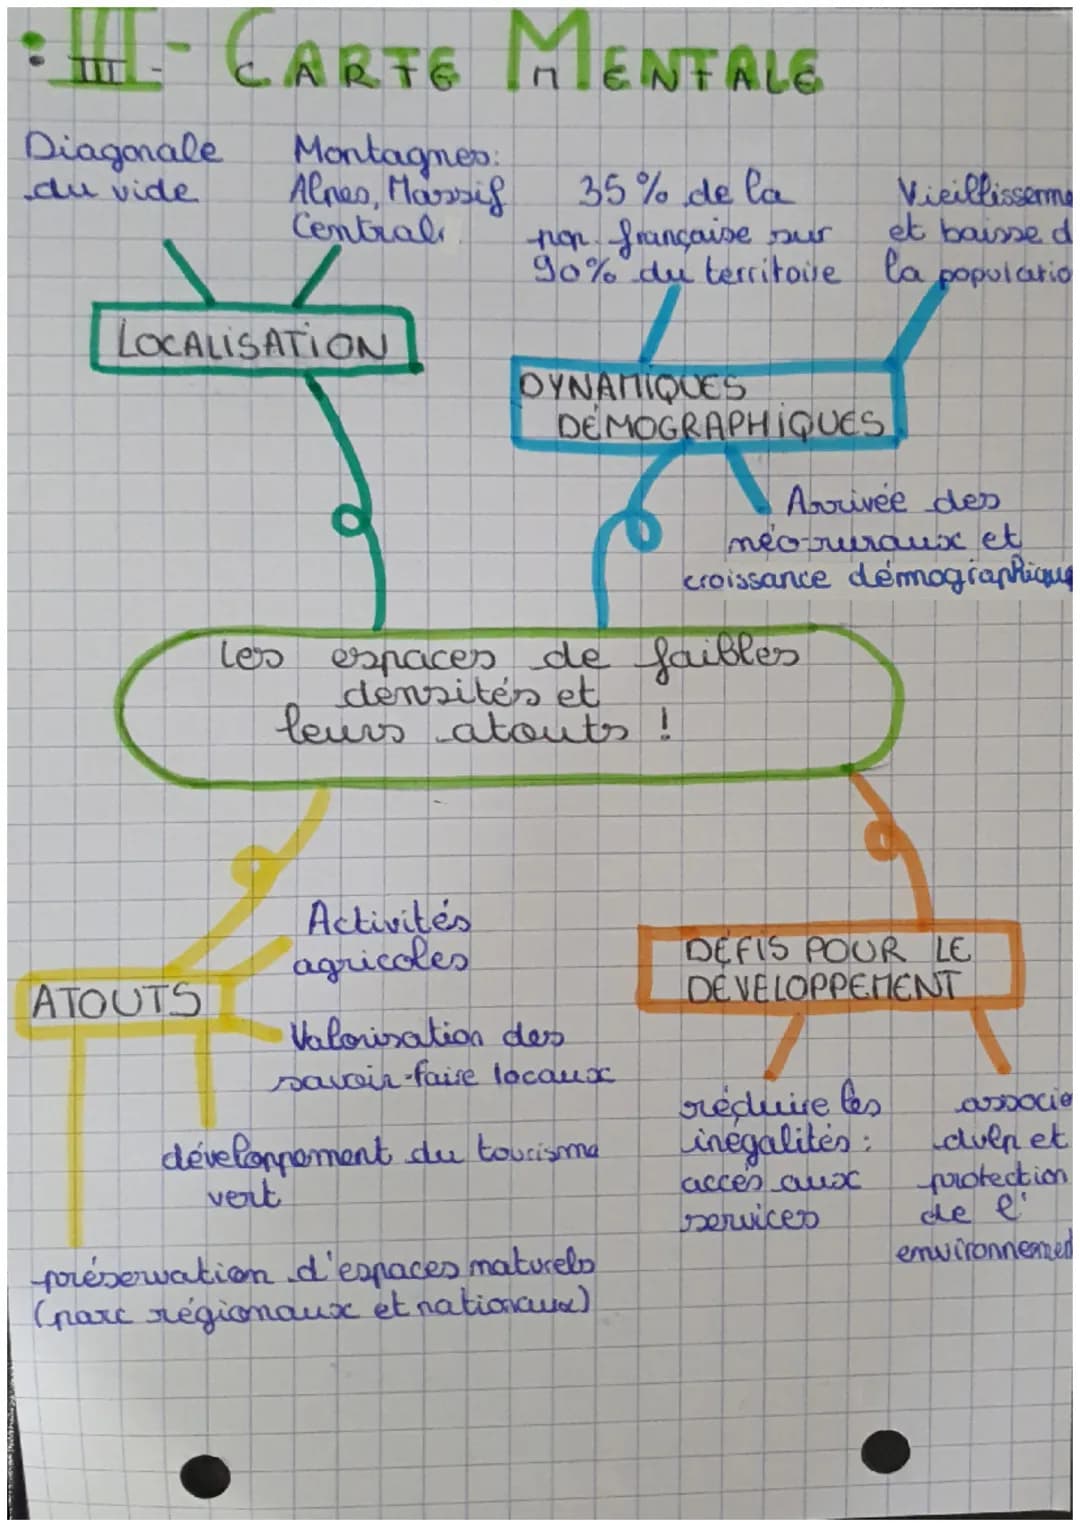 III - CARTE MENTALE
Diagonale
du vide
Montagnes:
Alpes, Massif
Central.
35% de la
pop. française sur
90% du territoire
Vieillisseme
et baisse d
la populatio
LOCALISATION
DYNAMIQUES
DÉMOGRAPHIQUES
Arrivée des
néo-ruraux et
croissance démographique
Les espaces de faibles
densités et
leurs atouts !
Activités
agricoles
ATOUTS
Valorisation des
savoir-faire locaux
développement du tourisme
vert
préservation d'espaces naturels
(parc régionaux et nationaux)
DÉFIS POUR LE
DÉVELOPPEMENT
réduire les
inégalités :
accès aux
services
associe
dvlp et
protection
de l'
environnemen